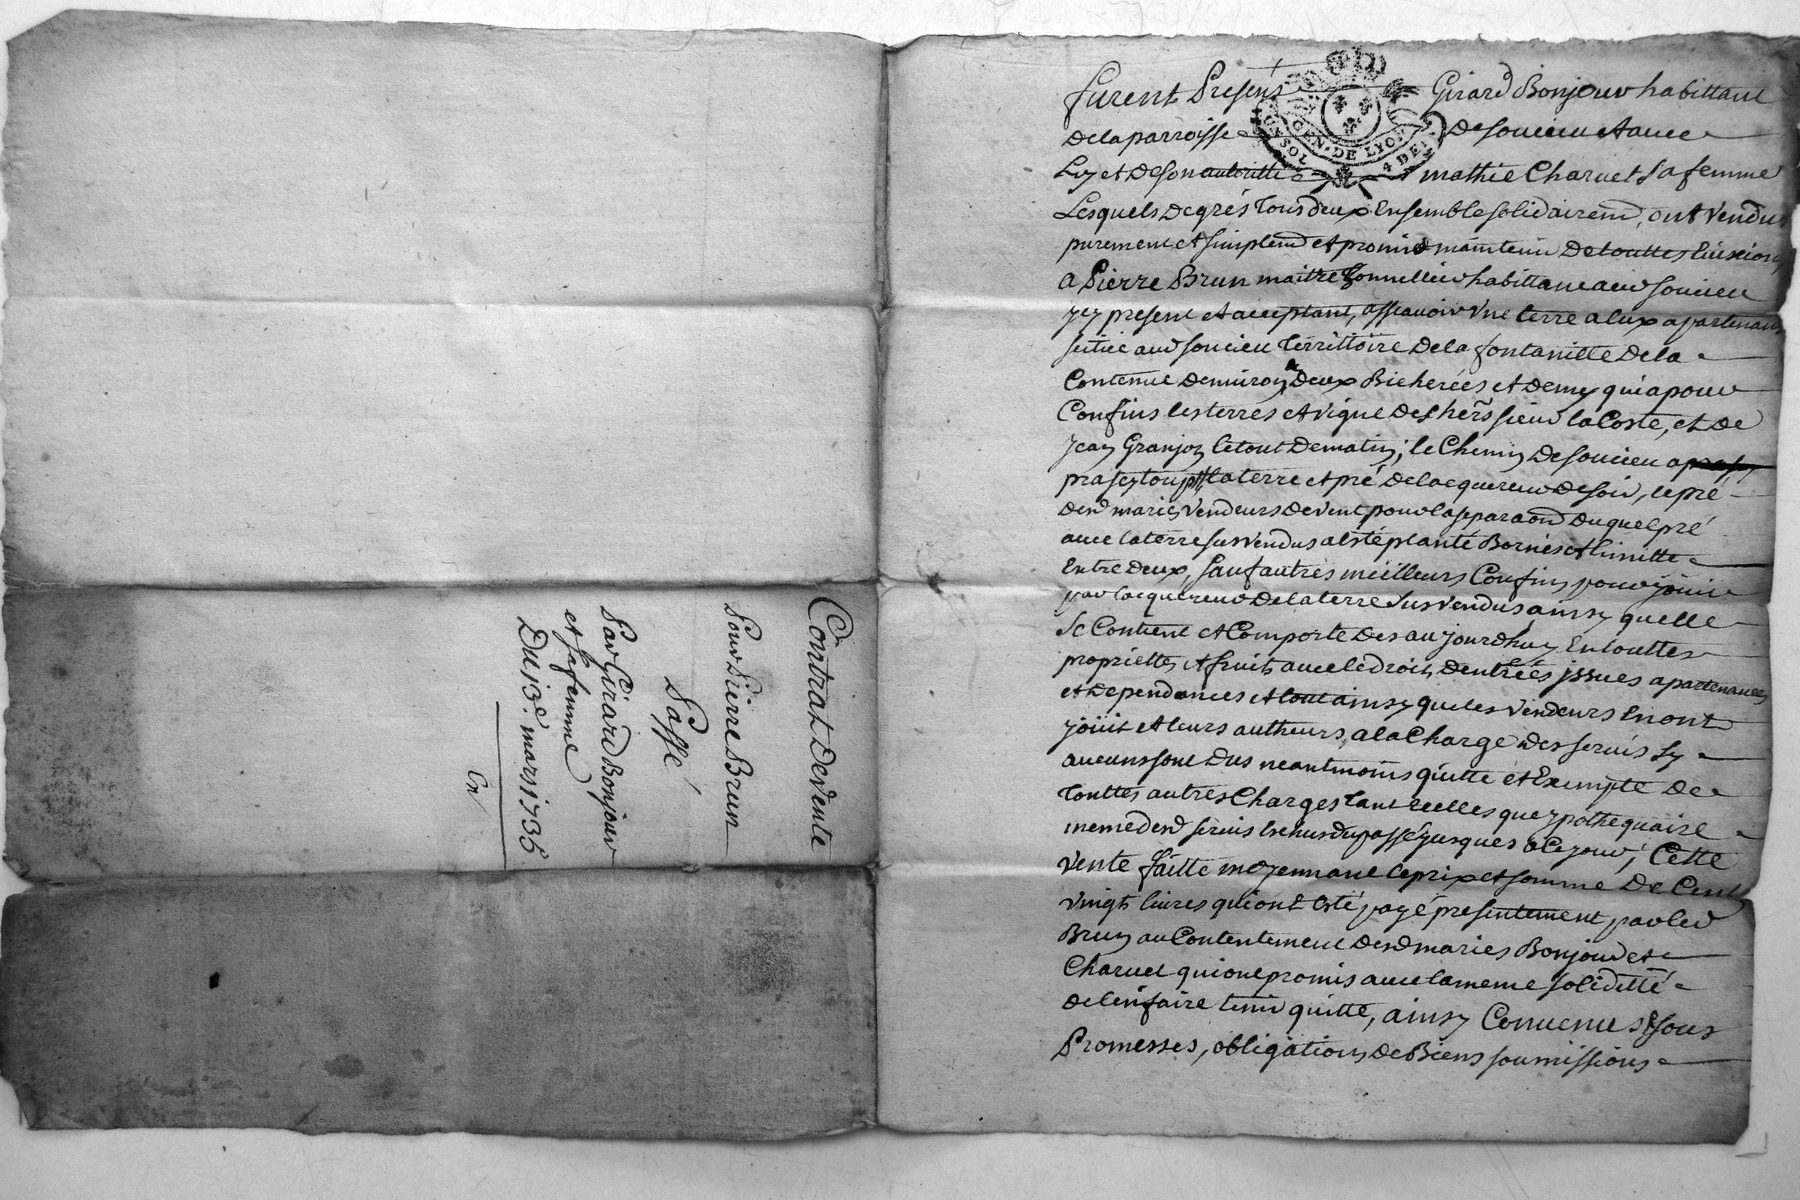 Contrat De vente
Pour Pierre Brun
Passé
Par Girard Bonjour
et sa femme
Du 13e. mars 1735
Cn
GEN. DE LYON
UN SOL 4 DEN
furent Presens Girard Bonjour habittant
De la parroisse De soucieu et avec
Luy et De son autoritté mathie Charuet sa femme
Lesquels De grés tous deux Ensemble solidairemt, ont vendus
purement et simplemt et promis maintenir De touttes Evixions
a Pierre Brun maitre Tonnellier habittant aud soucieu
yey present et acceptant, assavoir Une terre a eux apartenant
scittuée aud soucieu Territtoire De la fontanille De la
Contenue Denviron Deux Bicherées et Demy qui a pour
Confins les terres et vigne Des hers sieur la Coste, et De
Jean Granjon le tout De matin; le Chemin De soucieu a
la terre et pré De lacquereur De soir, le pré
Desd mariés vendeurs De vent pour la separaon Duquel pré
avec la terre sus vendus a esté planté Bornes et limitte
Entre Deux, sauf autres meilleurs Confins pour joüir
par lacquereur De la terre sus vendus ainsy quelle
se Contient et Comporte Des aujourdhuy En touttes
propriettés et fruits avec le droit Dentrées issues apartenances
et Dependances et tout ainsy que les vendeurs En ont
joüit et leurs autheurs, a la Charge Des servis sy
aucuns sont Dus neantmoins quitte et Exempte De
Touttes autres Charges tant reelles que ypothequaire
meme Desd servis Echus du passé jusques a Ce jour; Cette
vente faitte moyennant le prix et somme De Cent
vingt livres qui ont Esté payé presentement par led
Brun au Contentement Desd mariés Bonjour et
Charuet qui ont promis avec la meme soliditté
De l'en faire tenir quitte, ainsy Convenus sous
Promesses, obligations De Biens soumissions